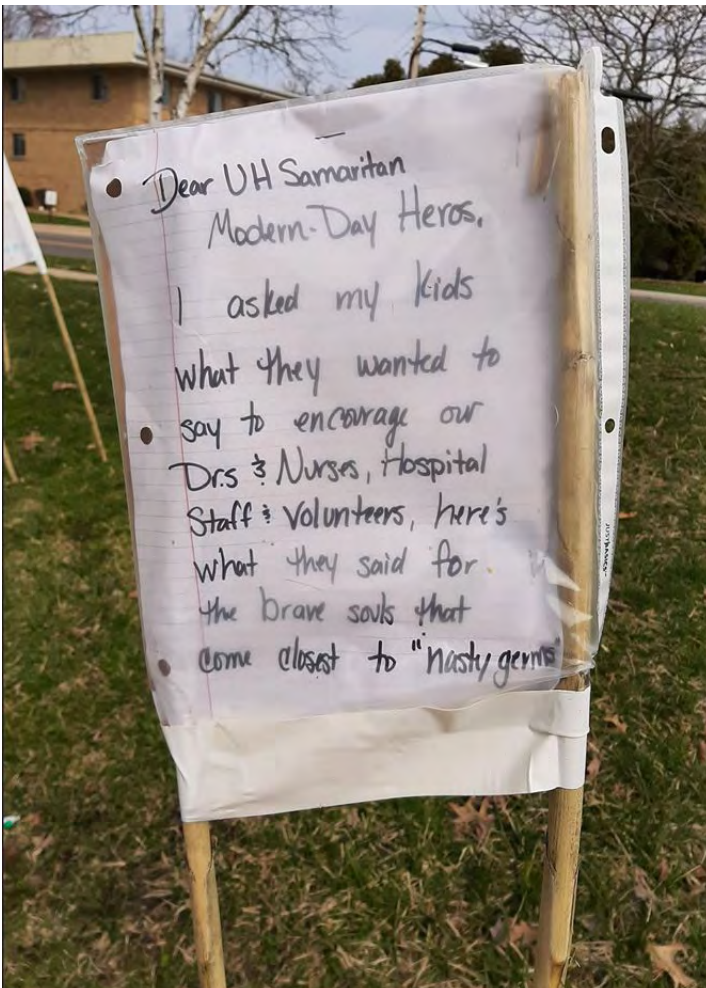 Dear UH Samaritan
Modern-Day Heros,
I asked my kids
what they wanted to
say to encourage our
Drs & Nurses, Hospital
Staff & Volunteers, here's
what they said for
the brave souls that
come closest to "nasty germs"
JUSTBASICS